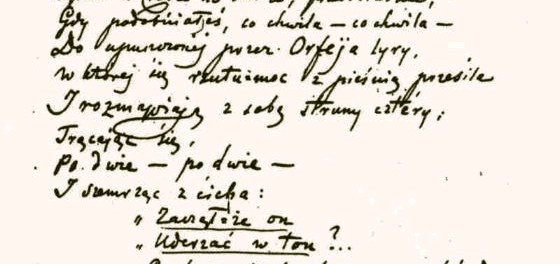 Gdy podobniałeś, co chwila – co chwila –
Do upuszczonej przez Orfeja lyry,
w której się rzutu-moc z pieśnią przesila
I rozmawiają z sobą struny cztéry;
Trącając się,
Po dwie – po dwie –
I szemrząc z cicha:
„Zacząłże on
„Uderzać w ton?..